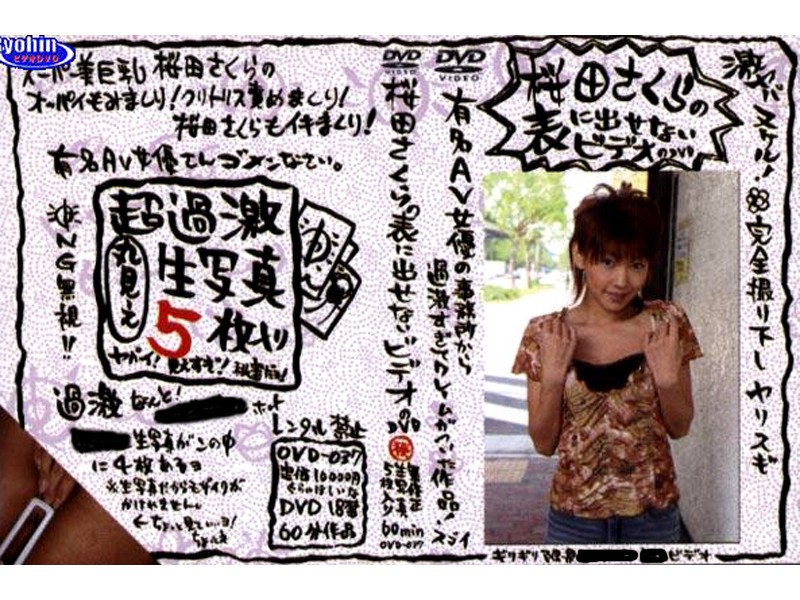 Ryohin
ビデオDVD
スーパー美巨乳 桜田さくらの
オッパイもみまくり!クリトリス責めまくり!
桜田さくらもイキまくり!
有名AV女優さんゴメンなさい。
NG無視!!
超過激
丸見え
生写真
5枚入り
ヤバイ!見えすぎ!
過激なんと!
生写真がこの中
に4枚あるヨ
※生写真だからモザイクが
かけれません。
レンタル禁止
DVD-037
定価10000円
ぐらいはしいな
DVD 18禁
60分作品
DVD
VIDEO
桜田さくらの表に出せないビデオのDVD
60min
DVD-037
DVD
VIDEO
有名AV女優の事務所から
過激すぎてクレームがついた作品!スゴイ
桜田さくらの
表に出せない
ビデオのDVD
完全撮り下し ヤリスギ
ギリギリ
ビデオ